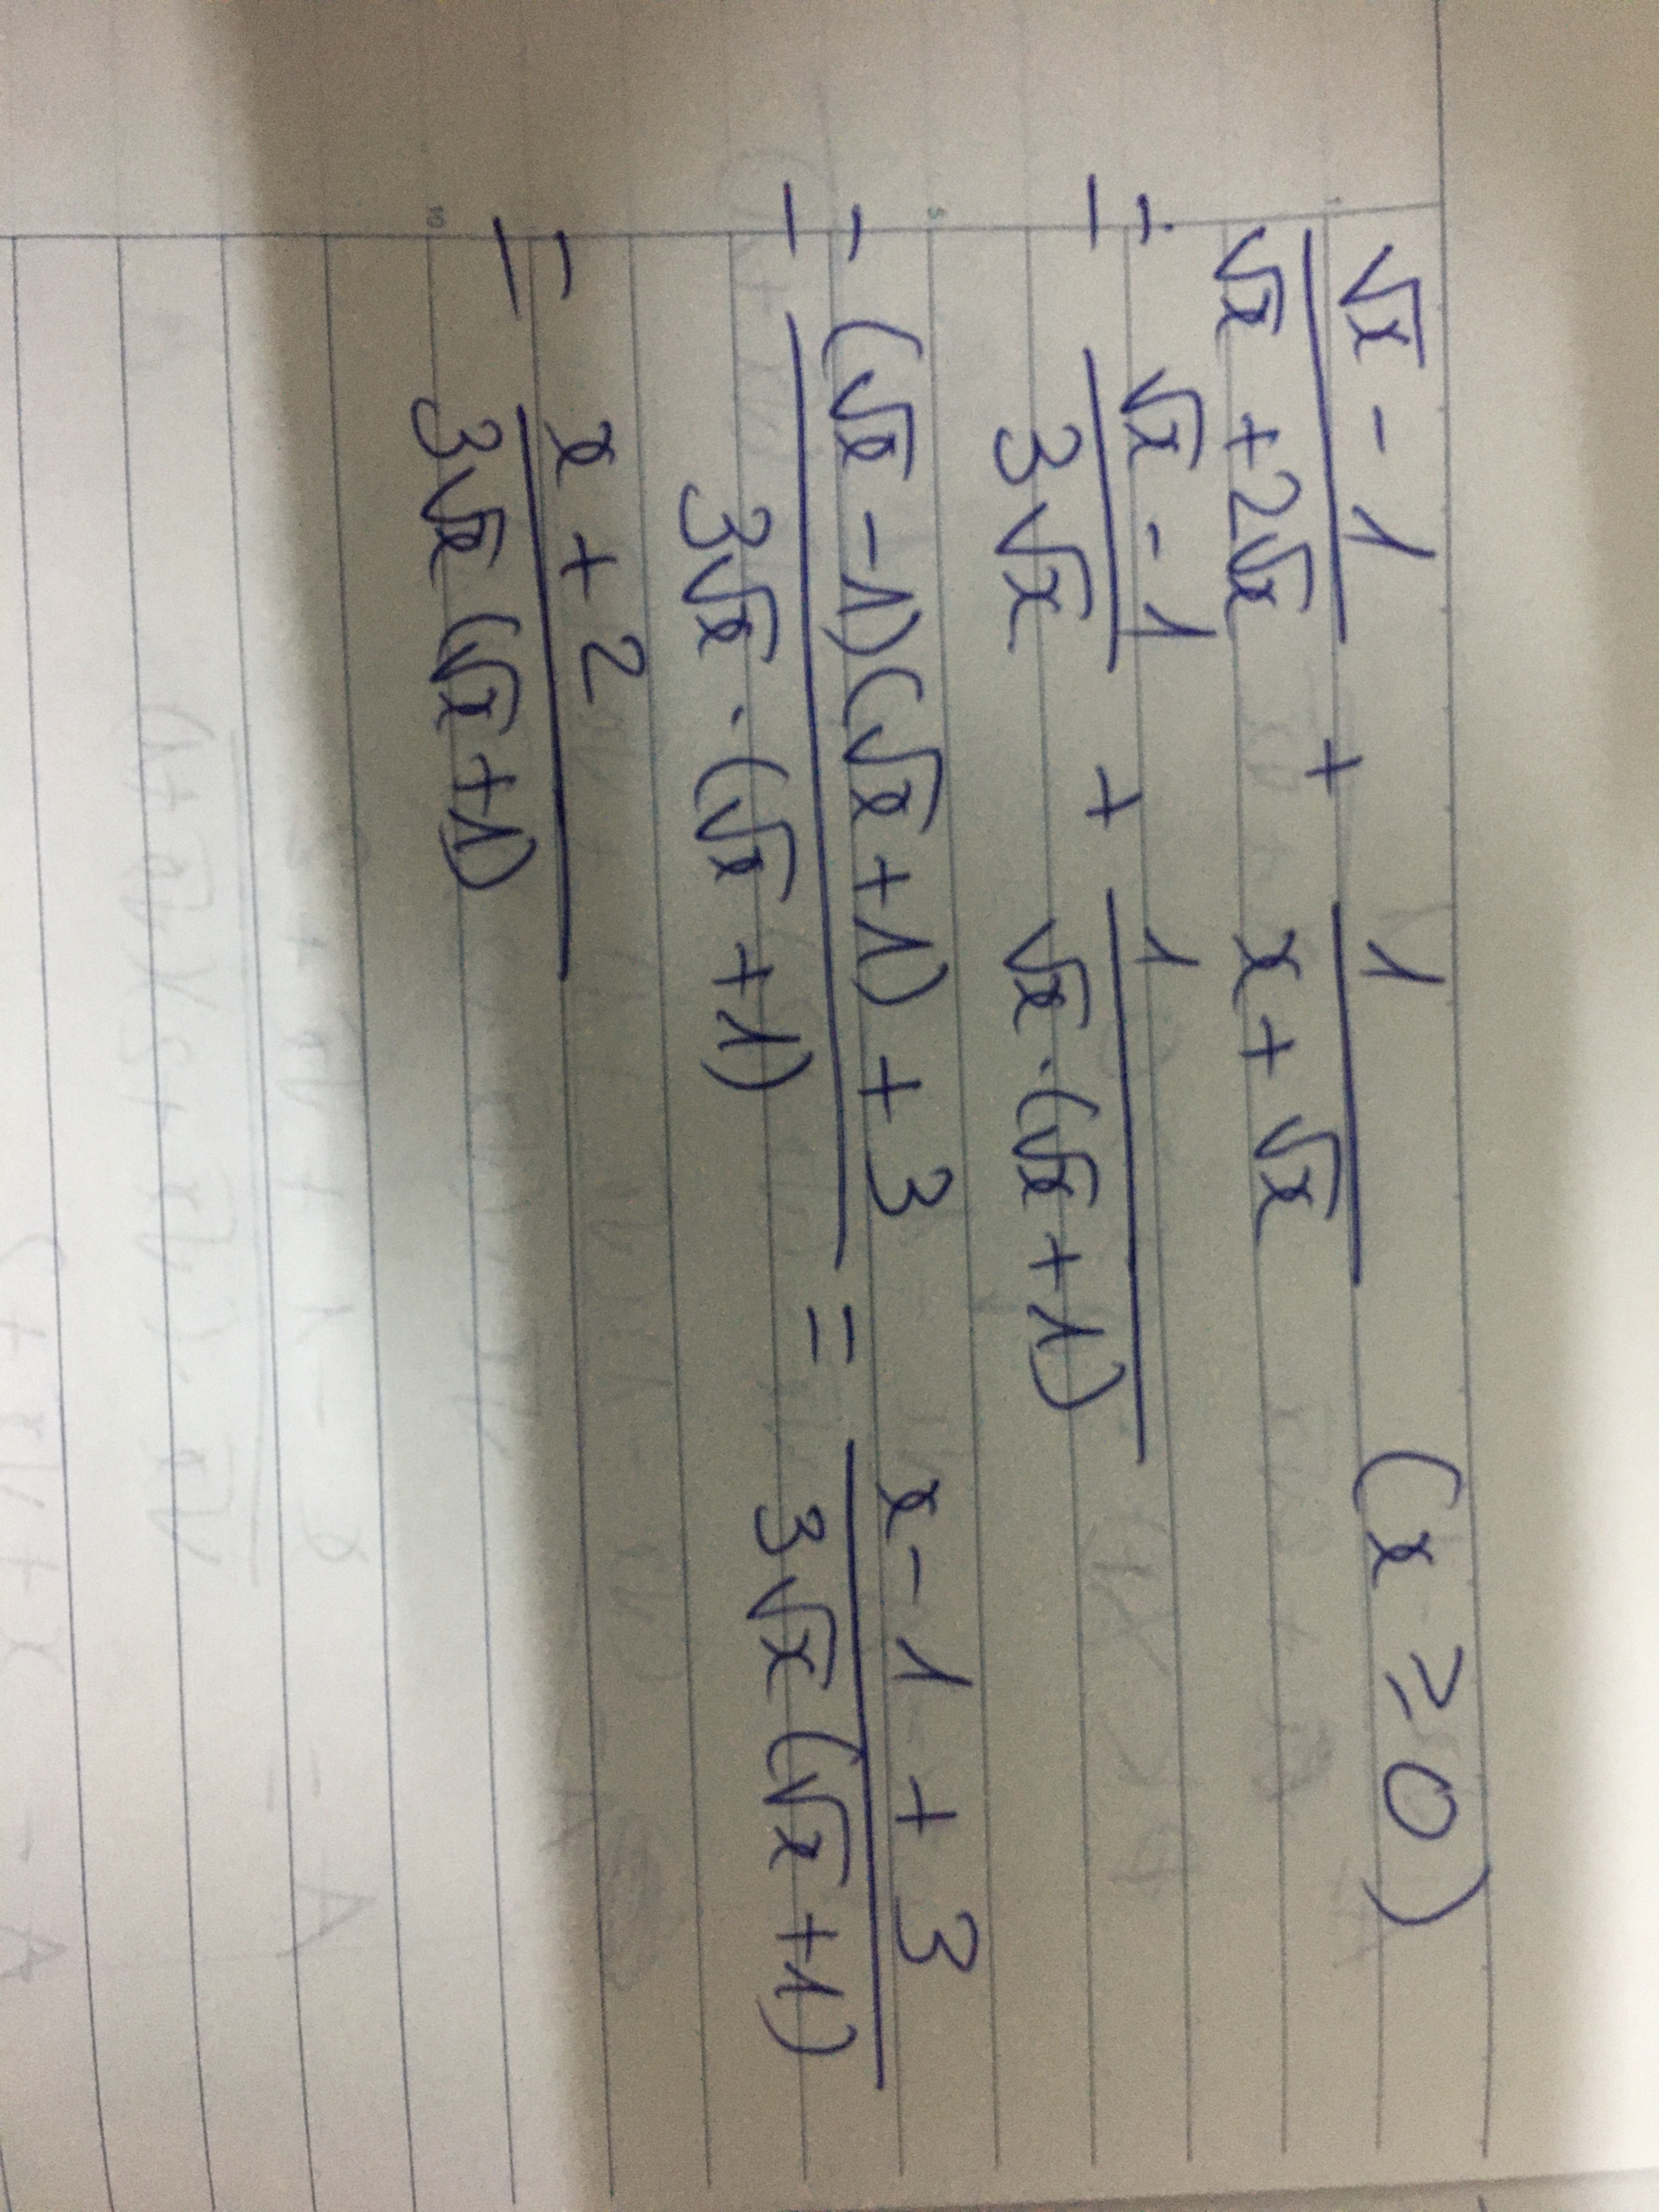 (√x - 1)/(√x + 2√x) + 1/(x + √x) (x ≥ 0)
= (√x - 1)/(3√x) + 1/(√x · (√x + 1))
= ((√x - 1)(√x + 1) + 3)/(3√x · (√x + 1)) = (x - 1 + 3)/(3√x (√x + 1))
= (x + 2)/(3√x (√x + 1))